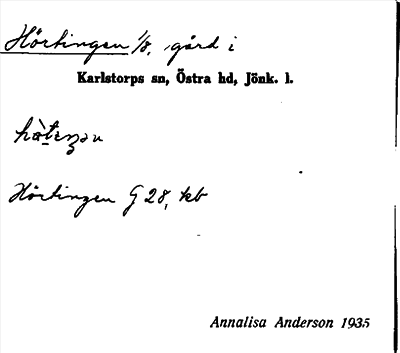 Hörtingen 1/8, gård i
Karlstorps sn, Östra hd, Jönk. l.
Hörtingen G 28, kb
Annalisa Anderson 1935